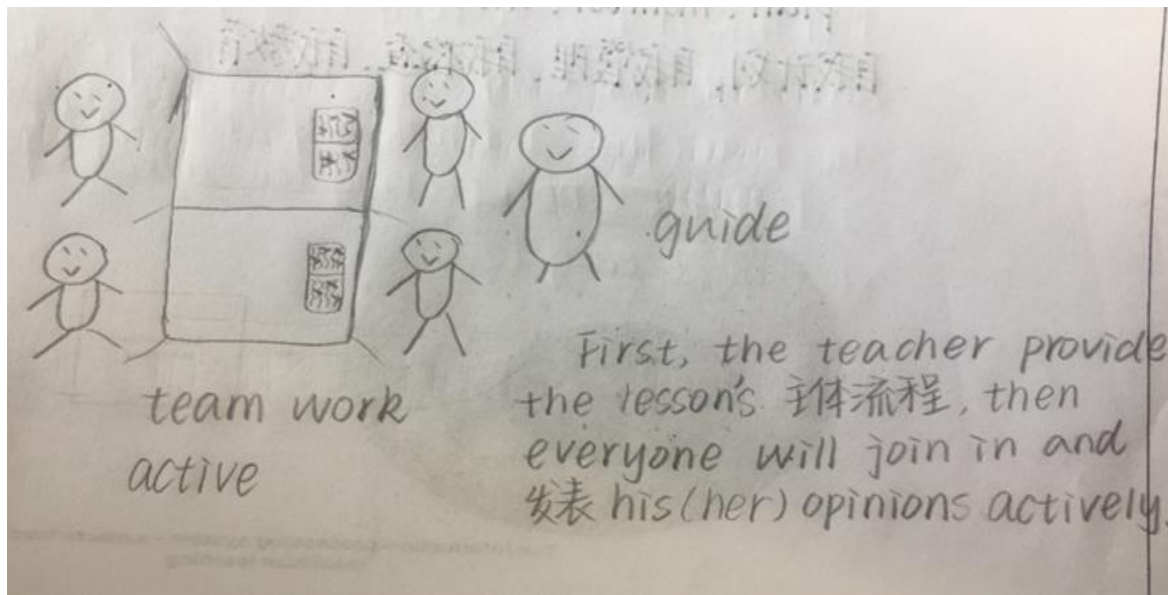 guide
team work
active
First, the teacher provide
the lesson's 主体流程, then
everyone will join in and
发表 his(her) opinions actively.